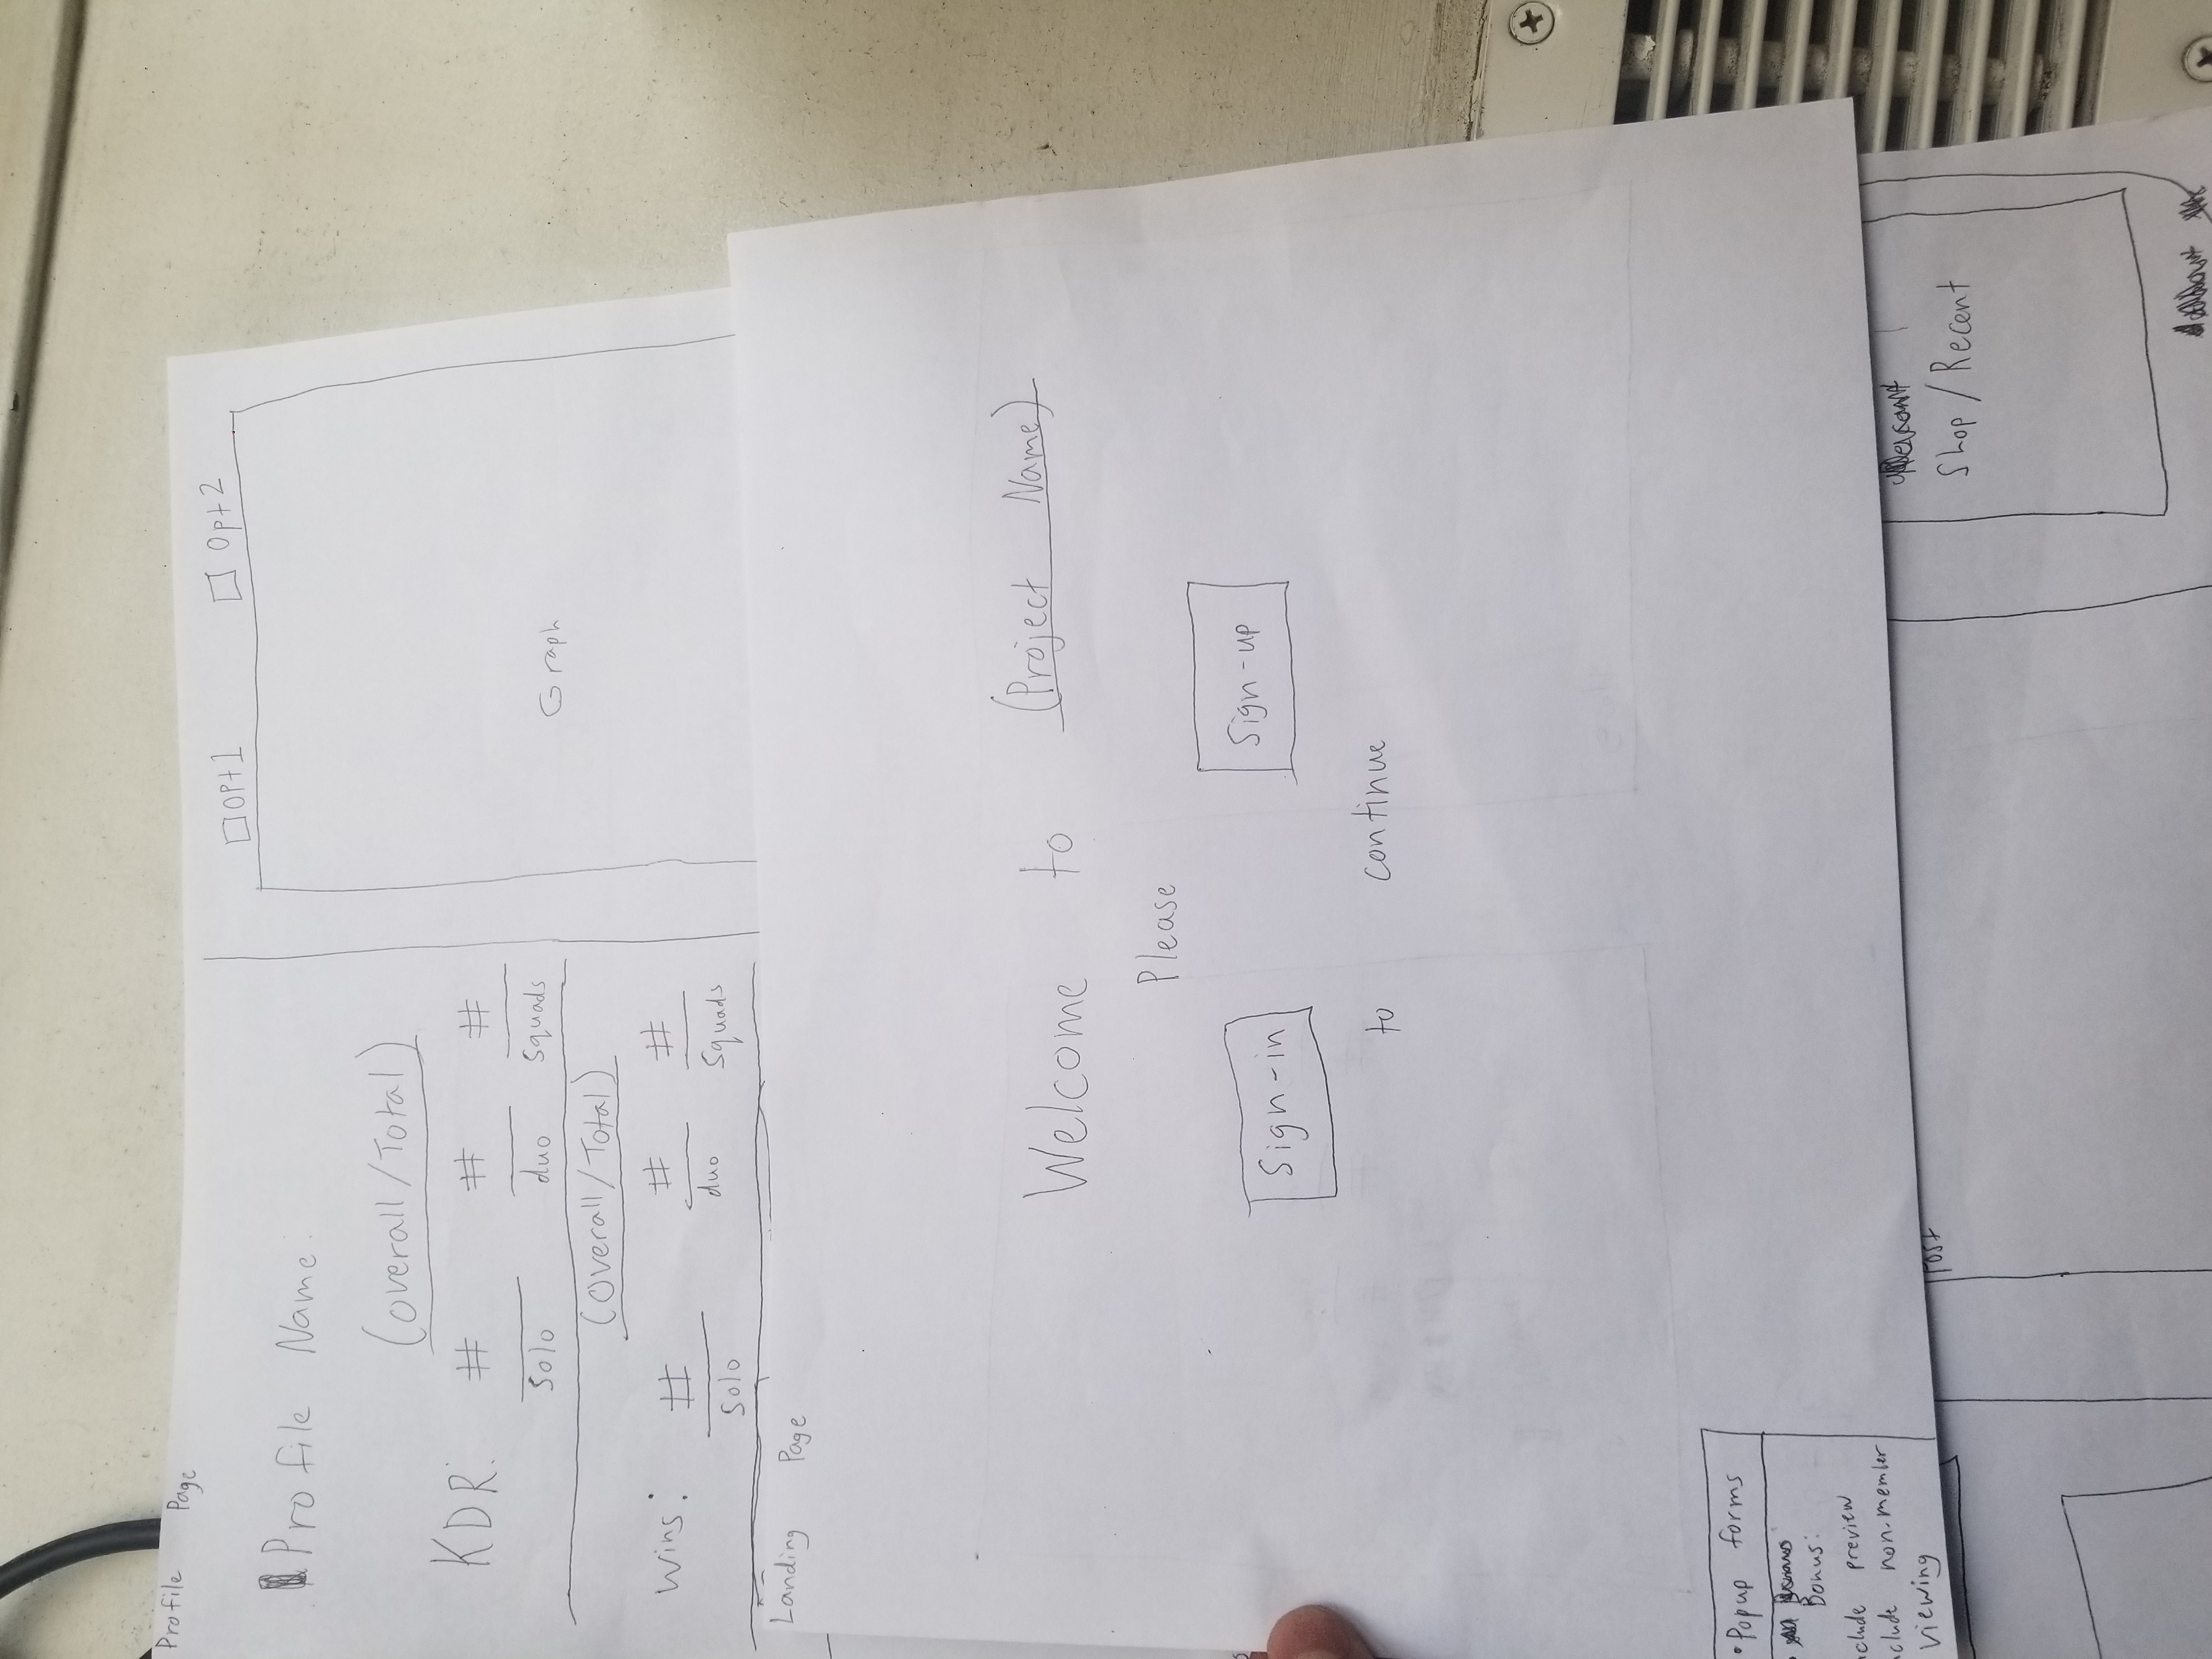 Profile Page
Opt1 Opt2
Profile Name:
(Overall/Total)
KDR: # # #
Solo duo Squads
Graph
(Overall/Total)
Wins: # # #
Solo duo Squads
Landing Page
Welcome to (Project Name)
Please
Sign-in Sign-up
to continue
•Popup forms
Bonus:
preview
non-member
viewing
Shop/Recent